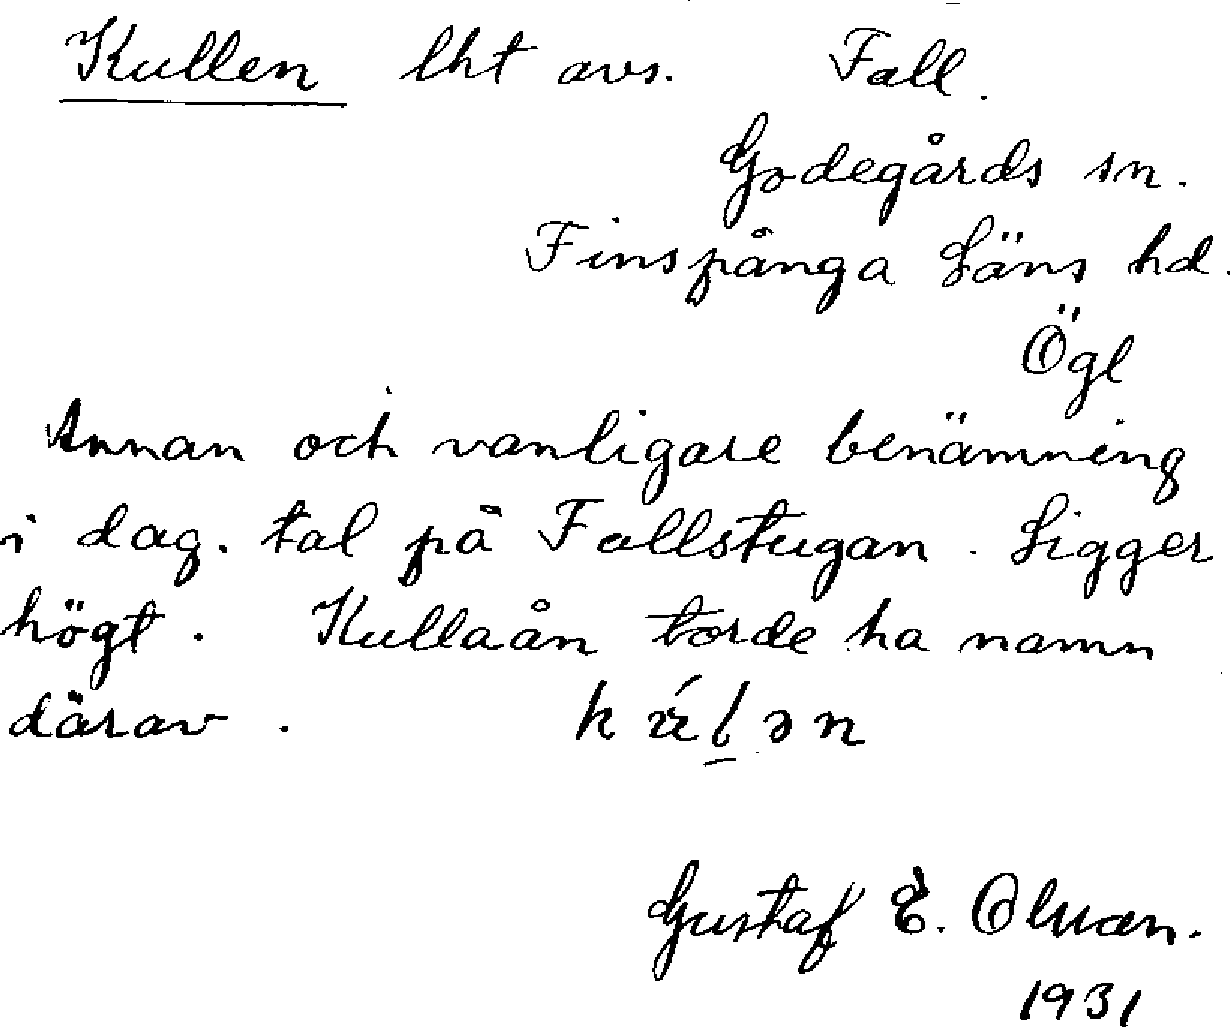 Kullen lht avs. Fall.
Godegårds sn.
Finspånga Läns hd.
Ögl
Annan och vanligare benämning
i dag. tal på Fallstugan. Ligger
högt. Kullaån torde ha namn
därav.
Gustaf E.
1931